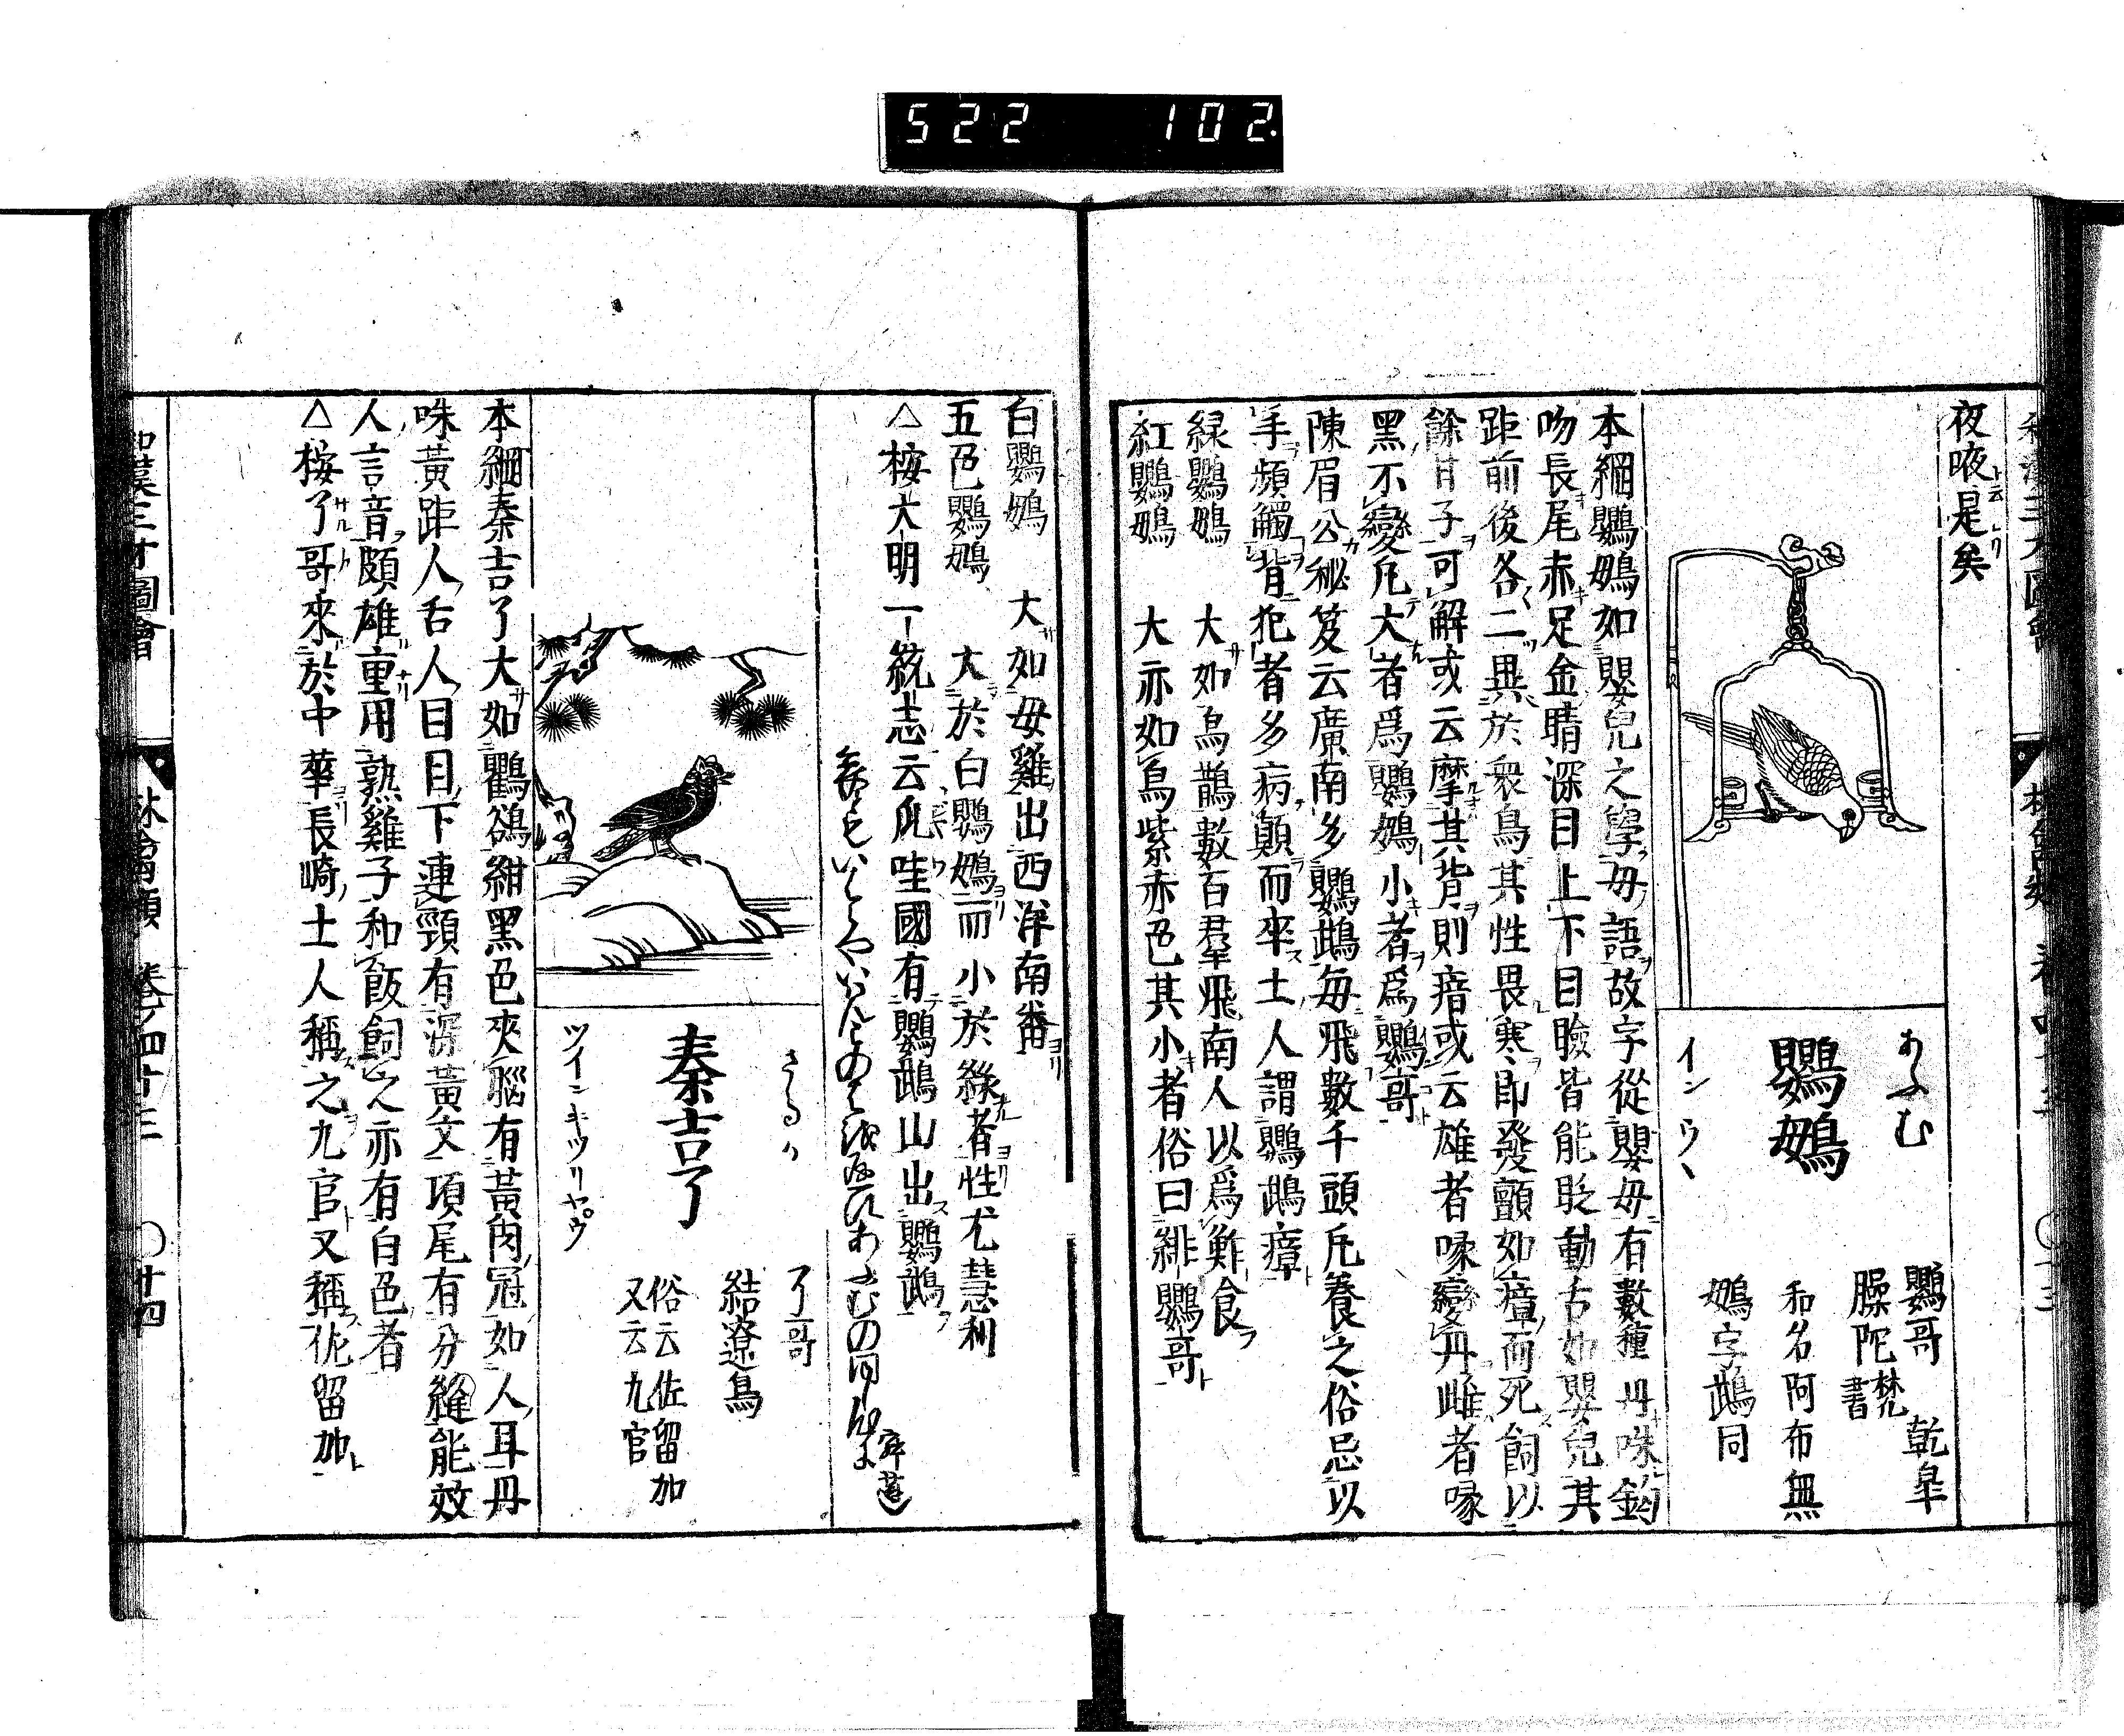 522 102.
夜啼是矣
あふむ
鸚䳇
インウヽ
鸚哥 乾皐
臊陀梵書
和名阿布無
䳇字鵡同
本綱鸚䳇如嬰兒之學母語故字從嬰母有數種丹咮鈎
吻長尾赤足金睛深目上下目瞼皆能眨動舌如嬰兒其
距前後各二異於衆鳥其性畏寒即發顫如瘴而死飼以
餘甘子可解或云摩其背則瘖或云雄者喙變丹雌者喙
黑不變凡大者爲鸚䳇小者爲鸚哥
陳眉公秘笈云廣南多鸚鵡毎飛數千頭凡養之俗忌以
手頻觸背犯者多病顛而卒土人謂鸚鵡瘴
緑鸚䳇 大如烏鵲數百羣飛南人以爲鮓食
紅鸚䳇 大亦如烏紫赤色其小者俗曰緋鸚哥
白鸚䳇 大如母雞出西洋南番
五色鸚䳇 大於白鸚䳇而小於緑者性尤慧利
△按大明一統志云爪哇國有鸚鵡山出鸚鵡
寂蓮
さるか
秦吉了
ツインキツリヤ゜ウ
了哥
結遼鳥
俗云佐留加
又云九官
本綱秦吉了大如鸜鵒紺黑色夾腦有黃肉冠如人耳丹
咮黃距人舌人目目下連頸有深黃文頂尾有分縫能效
人言音頗雄重用熟雞子和飯飼之亦有白色者
△按了哥來於中華長崎土人稱之九官又稱佐留加
和漢三才圖會 林禽類 卷ノ四十三 〇廿四